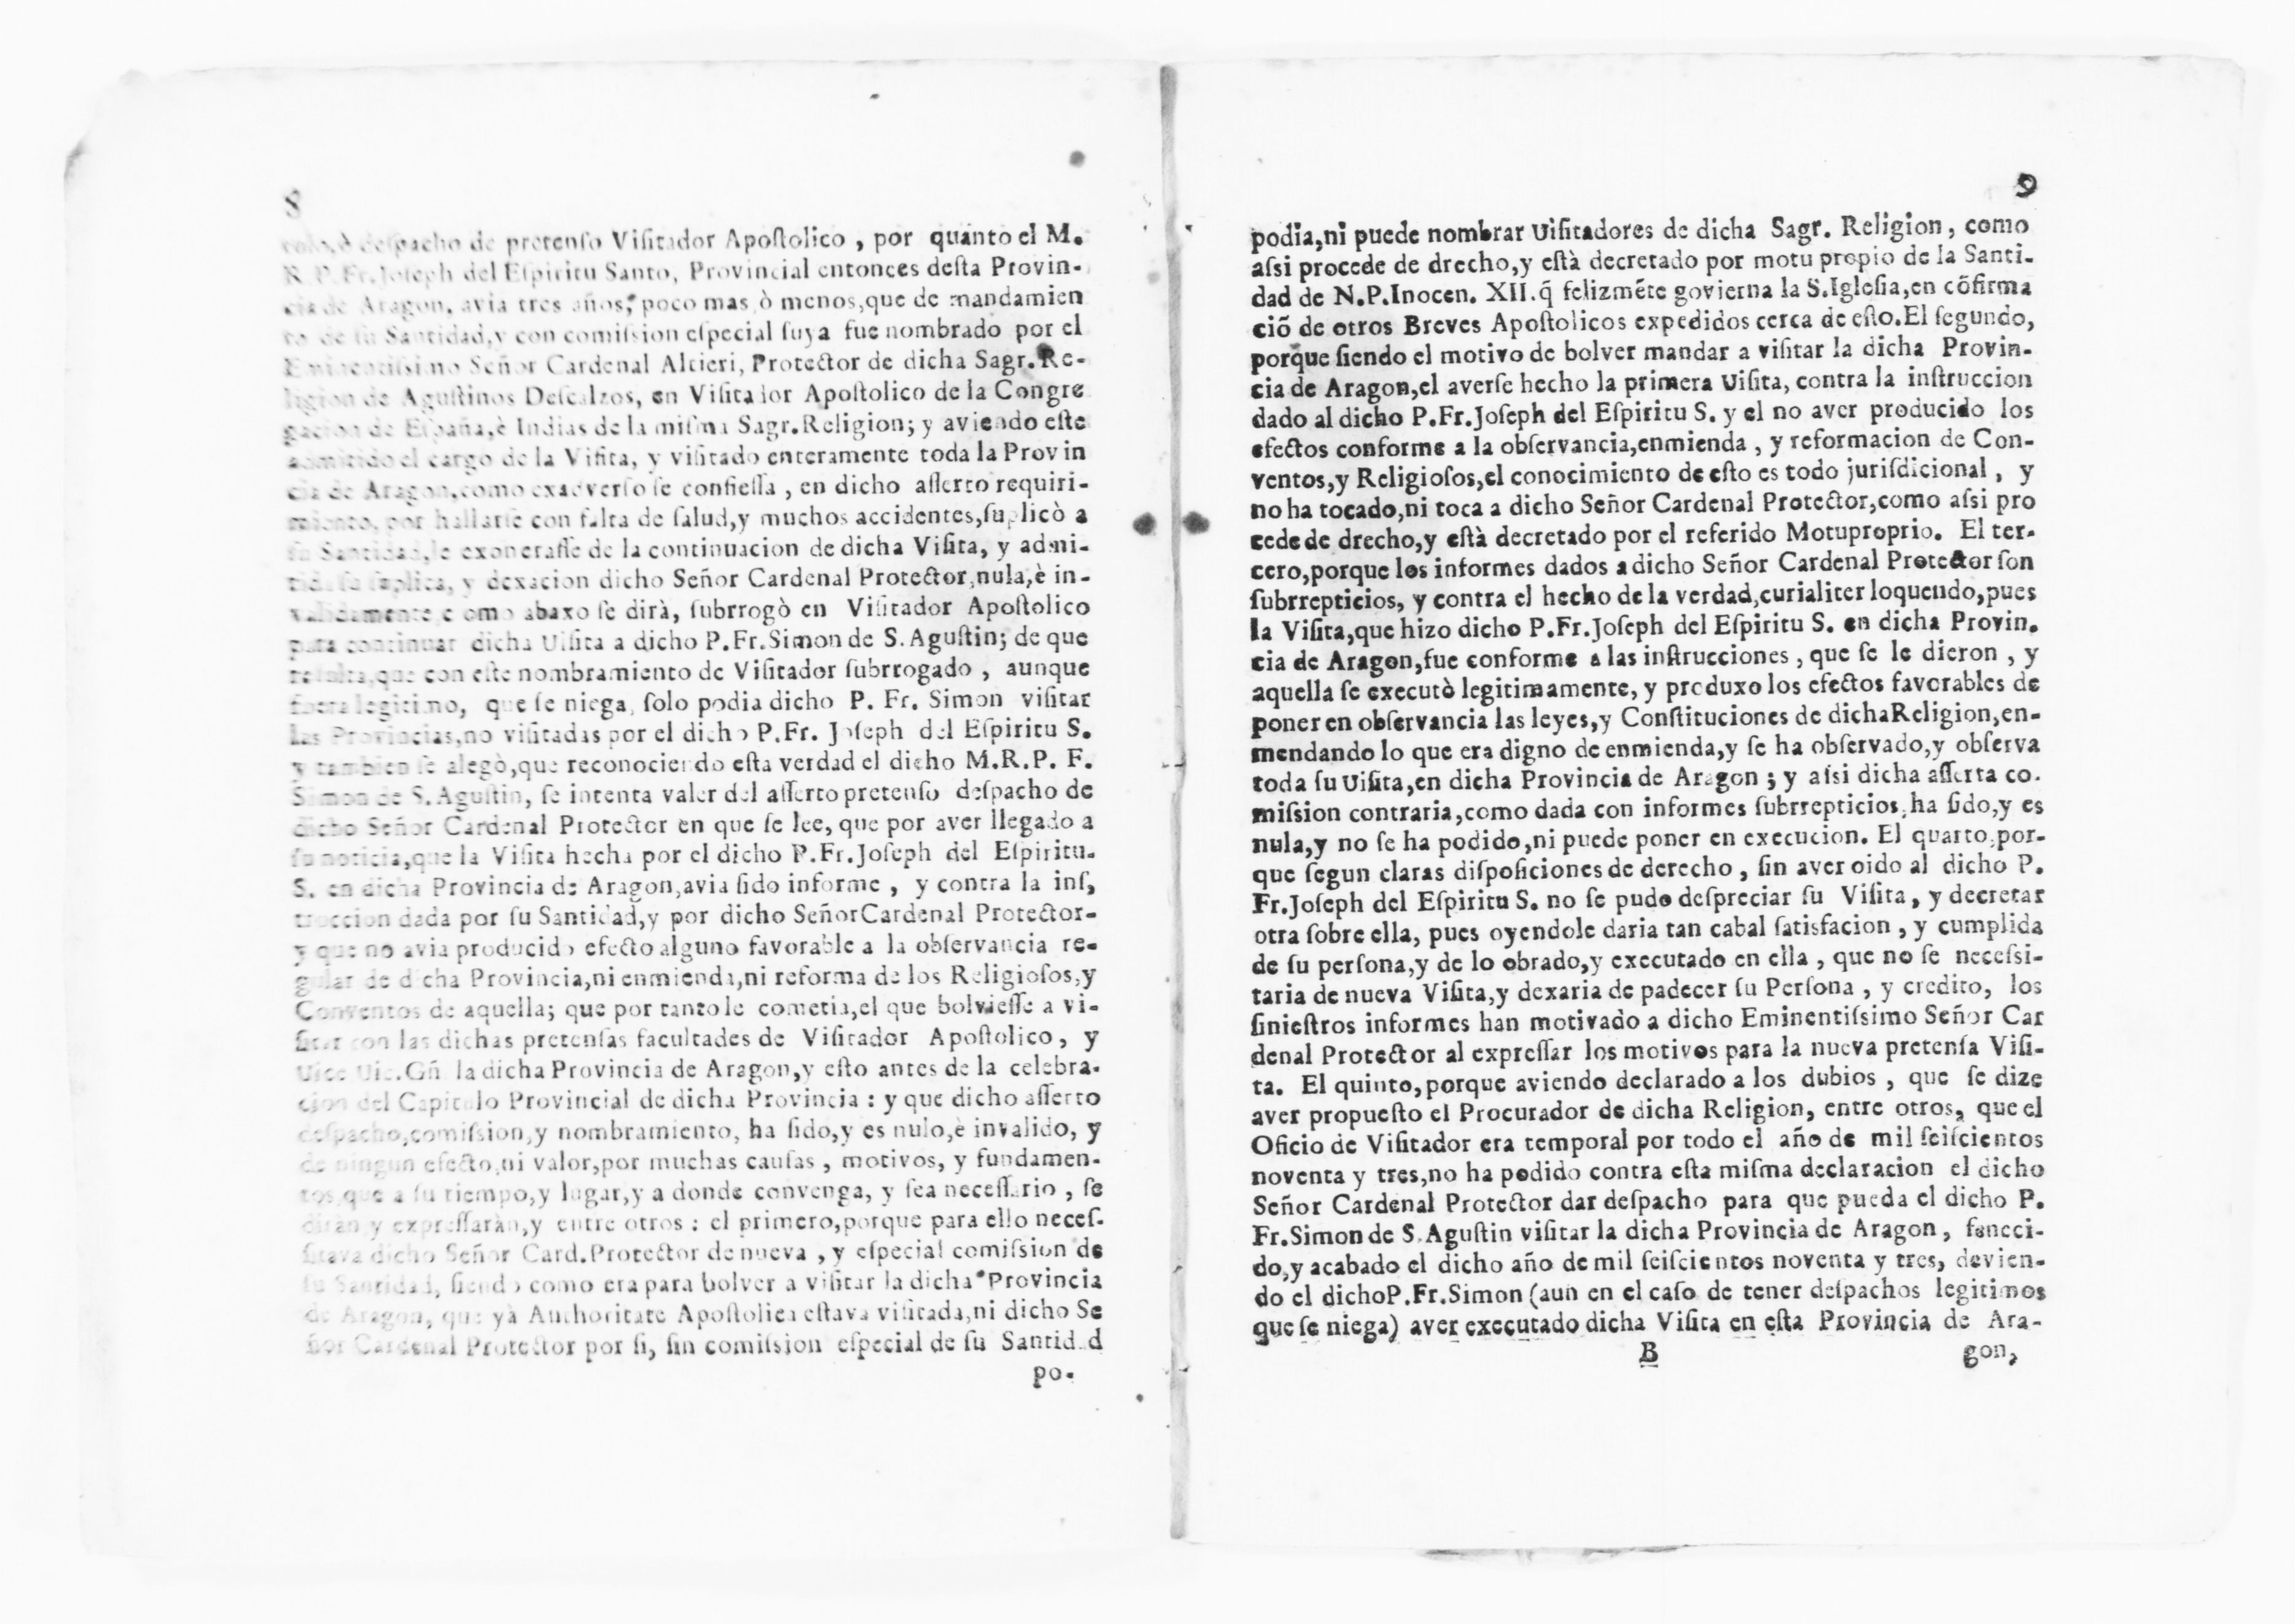 8
despacho de pretenso Visitador Apostolico , por quanto el M.
R. P. Fr. Joseph del Espiritu Santo, Provincial entonces desta Provin-
cia de Aragon, avia tres años, poco mas, ò menos,que de mandamien
to de su Santidad,y con comission especial suya fue nombrado por el
Eminentissimo Señor Cardenal Altieri, Protector de dicha Sagr. Re-
ligion de Agustinos Descalzos, en Visitador Apostolico de la Congre
gacion de España,è Indias de la misma Sagr.Religion; y aviendo este
admitido el cargo de la Visita, y visitado enteramente toda la Provin
cia de Aragon,como exadverso se confiessa , en dicho asserto requiri-
miento, por hallarse con falta de salud,y muchos accidentes,suplicò a
su Santidad,le exonerasse de la continuacion de dicha Visita, y admi-
tida su suplica, y dexacion dicho Señor Cardenal Protector,nula,è in-
validamente,como abaxo se dirà, subrrogò en Visitador Apostolico
para continuar dicha Uisita a dicho P.Fr.Simon de S. Agustin; de que
resulta,que con este nombramiento de Visitador subrrogado , aunque
fuera legitimo, que se niega, solo podia dicho P. Fr. Simon visitar
las Provincias,no visitadas por el dicho P.Fr. Joseph del Espiritu S.
y tambien se alegò,que reconociendo esta verdad el dicho M.R.P. F.
Simon de S. Agustin, se intenta valer del asserto pretenso despacho de
dicho Señor Cardenal Protector en que se lee, que por aver llegado a
su noticia,que la Visita hecha por el dicho P.Fr.Joseph del Espiritu.
S. en dicha Provincia de Aragon,avia sido informe , y contra la ins,
truccion dada por su Santidad,y por dicho SeñorCardenal Protector-
y que no avia producido efecto alguno favorable a la observancia re-
gular de dicha Provincia,ni enmienda,ni reforma de los Religiosos,y
Conventos de aquella; que por tanto le cometia,el que bolviesse a vi-
sitar con las dichas pretensas facultades de Visitador Apostolico, y
Uice Uic.Gñ la dicha Provincia de Aragon,y esto antes de la celebra-
cion del Capitulo Provincial de dicha Provincia : y que dicho asserto
despacho,comission,y nombramiento, ha sido,y es nulo,è invalido, y
de ningun efecto,ni valor,por muchas causas , motivos, y fundamen-
tos,que a su tiempo,y lugar,y a donde convenga, y sea necessario , se
diràn y expressaràn,y entre otros : el primero,porque para ello neces-
sitava dicho Señor Card.Protector de nueva , y especial comission de
su Santidad, siendo como era para bolver a visitar la dicha Provincia
de Aragon, que yà Authoritate Apostolica estava visitada,ni dicho Se
ñor Cardenal Protector por si, sin comission especial de su Santidad
po-
9
podia,ni puede nombrar Uisitadores de dicha Sagr. Religion, como
assi procede de drecho,y està decretado por motu propio de la Santi-
dad de N.P.Inocen. XII.q̃ felizmẽte govierna la S.Iglesia,en cõfirma
ciõ de otros Breves Apostolicos expedidos cerca de esto.El segundo,
porque siendo el motivo de bolver mandar a visitar la dicha Provin-
cia de Aragon,el averse hecho la primera Uisita, contra la instruccion
dado al dicho P.Fr.Joseph del Espiritu S. y el no aver producido los
efectos conforme a la observancia,enmienda , y reformacion de Con-
ventos,y Religiosos,el conocimiento de esto es todo jurisdicional, y
no ha tocado,ni toca a dicho Señor Cardenal Protector,como assi pro
cede de drecho,y està decretado por el referido Motuproprio. El ter-
cero,porque los informes dados a dicho Señor Cardenal Protector son
subrrepticios, y contra el hecho de la verdad,curialiter loquendo,pues
la Visita,que hizo dicho P.Fr.Joseph del Espiritu S. en dicha Provin.
cia de Aragon,fue conforme a las instrucciones , que se le dieron , y
aquella se executò legitimamente, y produxo los efectos favorables de
poner en observancia las leyes,y Constituciones de dichaReligion,en-
mendando lo que era digno de enmienda,y se ha observado,y observa
toda su Uisita,en dicha Provincia de Aragon ; y assi dicha asserta co.
mission contraria,como dada con informes subrrepticios,ha sido,y es
nula,y no se ha podido,ni puede poner en execucion. El quarto,por-
que segun claras disposiciones de derecho , sin aver oido al dicho P.
Fr.Joseph del Espiritu S. no se pudo despreciar su Visita, y decretar
otra sobre ella, pues oyendole daria tan cabal satisfacion , y cumplida
de su persona,y de lo obrado,y executado en ella , que no se necessi-
taria de nueva Visita,y dexaria de padecer su Persona , y credito, los
siniestros informes han motivado a dicho Eminentissimo Señor Car
denal Protector al expressar los motivos para la nueva pretensa Visi-
ta. El quinto,porque aviendo declarado a los dubios , que se dize
aver propuesto el Procurador de dicha Religion, entre otros, que el
Oficio de Visitador era temporal por todo el año de mil seiscientos
noventa y tres,no ha podido contra esta misma declaracion el dicho
Señor Cardenal Protector dar despacho para que pueda el dicho P.
Fr.Simon de S.Agustin visitar la dicha Provincia de Aragon , feneci-
do,y acabado el dicho año de mil seiscientos noventa y tres, devien-
do el dichoP.Fr.Simon (aun en el caso de tener despachos legitimos
que se niega) aver executado dicha Visita en esta Provincia de Ara-
B gon,